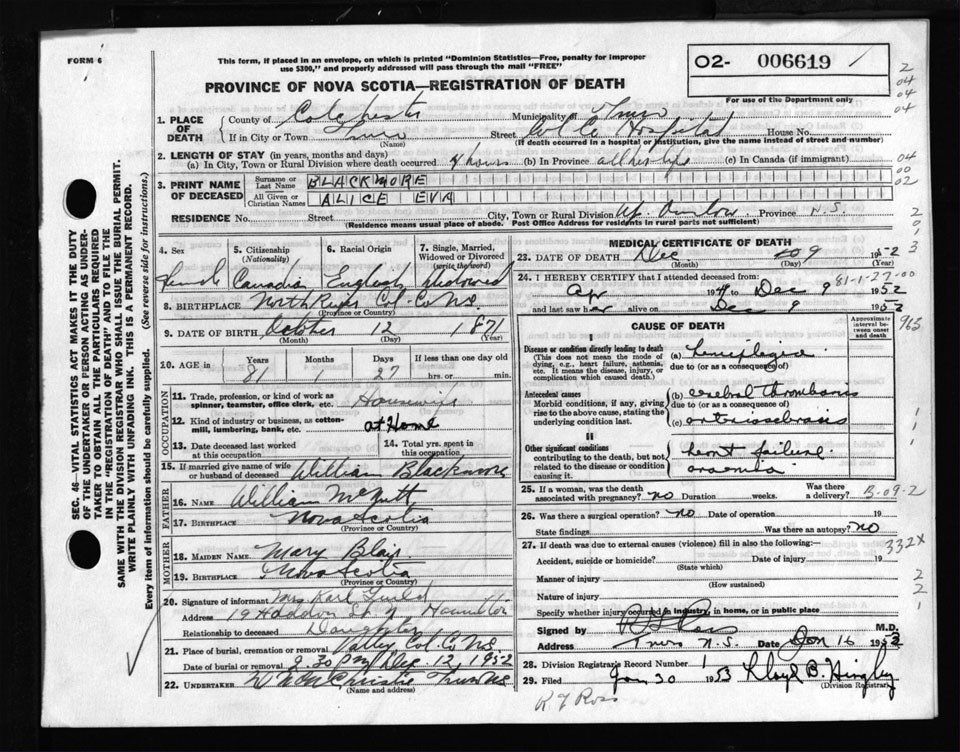 FORM 6
This form, if placed in an envelope, on which is printed "Dominion Statistics—Free, penalty for improper
use $300," and properly addressed will pass through the mail "FREE"
O2- 006619 /
For use of the Department only
PROVINCE OF NOVA SCOTIA—REGISTRATION OF DEATH
1. PLACE OF DEATH
County of Colchester Municipality of Truro
If in City or Town Truro Street Col Co Hospital House No.
(Name) (If death occurred in a hospital or institution, give the name instead of street and number)
2. LENGTH OF STAY (in years, months and days)
(a) In City, Town or Rural Division where death occurred 4 hours (b) In Province all her life (c) In Canada (if immigrant)
3. PRINT NAME OF DECEASED
Surname or Last Name BLACKMORE
All Given or Christian Names ALICE EVA
RESIDENCE No. Street City, Town or Rural Division Up. Onslow Province N.S.
(Residence means usual place of abode. Post Office Address for residents in rural parts not sufficient)
4. Sex Female
5. Citizenship (Nationality) Canadian
6. Racial Origin English
7. Single, Married, Widowed or Divorced (write the word) Widowed
8. BIRTHPLACE North River Col. Co N.S.
(Province or Country)
9. DATE OF BIRTH October 12 1871
(Month) (Day)
10. AGE in Years Months Days If less than one day old
81 1 27 hrs. or min.
OCCUPATION
11. Trade, profession, or kind of work as spinner, teamster, office clerk, etc. Housewife
12. Kind of industry or business, as cotton-mill, lumbering, bank, etc. at Home
13. Date deceased last worked at this occupation
14. Total yrs. spent in this occupation
15. If married give name of wife or husband of deceased William Blackmore
FATHER
16. NAME William McNutt
17. BIRTHPLACE Nova Scotia
(Province or Country)
MOTHER
18. MAIDEN NAME Mary Blair
19. BIRTHPLACE Nova Scotia
(Province or Country)
20. Signature of informant Mrs Karl Guild
Address 19 Haddon St N Hamilton
Relationship to deceased Daughter
21. Place of burial, cremation or removal Valley Col. Co N.S.
Date of burial or removal 2.30 PM Dec. 12, 1952
22. UNDERTAKER Christie Truro NS
(Name and address)
MEDICAL CERTIFICATE OF DEATH
23. DATE OF DEATH Dec 9 1952
(Month) (Day)
81-1-27-00
24. I HEREBY CERTIFY that I attended deceased from:
Ap 19 to Dec 9 1952
and last saw her alive on Dec 9 1952
CAUSE OF DEATH
Approximate interval between onset and death
I
Disease or condition directly leading to death
(This does not mean the mode of dying, e.g., heart failure, asthenia, etc. It means the disease, injury, or complication which caused death.)
(a) hemiplegia
due to (or as a consequence of)
Antecedent causes
Morbid conditions, if any, giving rise to the above cause, stating the underlying condition last.
(b) cerebral thrombosis
due to (or as a consequence of)
(c) arteriosclerosis
II
Other significant conditions
contributing to the death, but not related to the disease or condition causing it.
heart failure
anaemia
25. If a woman, was the death associated with pregnancy? no Duration weeks. Was there a delivery? B-09-2
26. Was there a surgical operation? no Date of operation 19
State findings Was there an autopsy? no
332X
27. If death was due to external causes (violence) fill in also the following:—
Accident, suicide or homicide? Date of injury 19
(State which)
Manner of injury
(How sustained)
Nature of injury
Specify whether injury occurred in industry, in home, or in public place
Signed by Ross M.D.
Address Truro N.S. Date Jan 16 1953
28. Division Registrar's Record Number 1
29. Filed Jan 30 1953 Lloyd B. Hingley
(Division Registrar)
Ross
SEC. 46—VITAL STATISTICS ACT MAKES IT THE DUTY
OF THE UNDERTAKER OR PERSON ACTING AS UNDER-
TAKER TO OBTAIN ALL THE PARTICULARS REQUIRED
IN THE "REGISTRATION OF DEATH" AND TO FILE THE
SAME WITH THE DIVISION REGISTRAR WHO SHALL ISSUE THE BURIAL PERMIT.
WRITE PLAINLY WITH UNFADING INK. THIS IS A PERMANENT RECORD.
Every item of information should be carefully supplied. (See reverse side for instructions.)
2
04
04
04
04
00
02
2
0
3
963
1
1
1
2
2
1